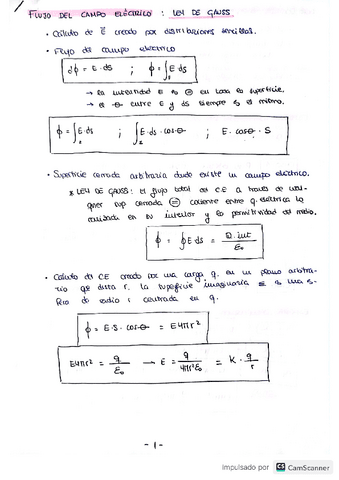 FLUJO DEL CAMPO ELÉCTRICO : LEY DE GAUSS
• Cálculo de E creado por distribuciones sencillas.
• Flujo de campo eléctrico
dϕ = E · ds ; ϕ = ∫s E ds
→ La intensidad E es = en toda la superficie.
→ el θ entre E y ds siempre es el mismo.
ϕ = ∫s E · ds ; ∫s E · ds · cosθ ; E · cosθ · S
• Superficie cerrada arbitraria donde existe un campo eléctrico.
* LEY DE GAUSS: el flujo total del C.E a través de cual-
quier sup cerrada = cociente entre q. eléctrica
en su interior y la permitividad del medio.
ϕ = ∮ E ds = Q.int / ε₀
• Cálculo del CE creado por una carga q. en un punto arbitra-
rio que dista r. La superficie imaginaria es una es-
fera de radio r centrada en q.
ϕ = E · S · cosθ = E 4πr²
E4πr² = q / ε₀ → E = q / 4πr²ε₀ = K · q / r
- 1 -
Impulsado por CS CamScanner